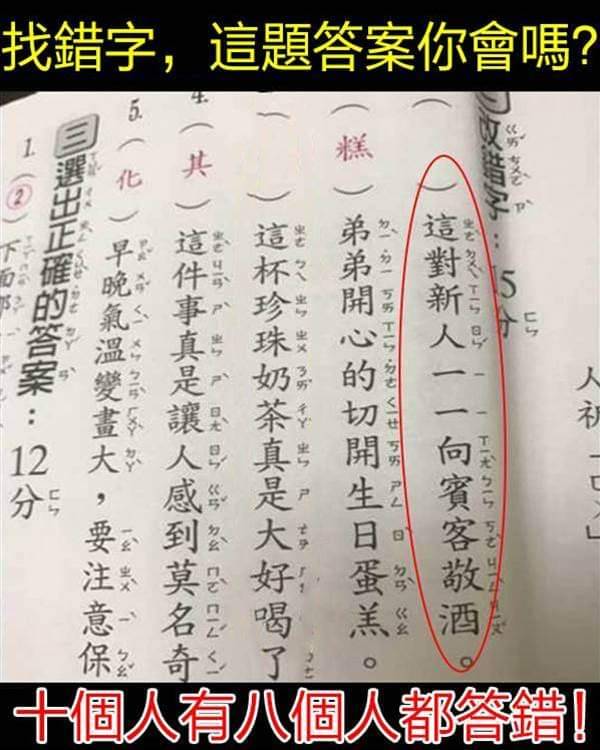 找錯字，這題答案你會嗎?
改錯字：15分
（ ）這對新人一一向賓客敬酒。
（糕）弟弟開心的切開生日蛋羔。
（ ）這杯珍珠奶茶真是大好喝了
4.（其）這件事真是讓人感到莫名奇
5.（化）早晚氣溫變畫大，要注意保
三選出正確的答案：12分
1.（②）下面那
十個人有八個人都答錯!